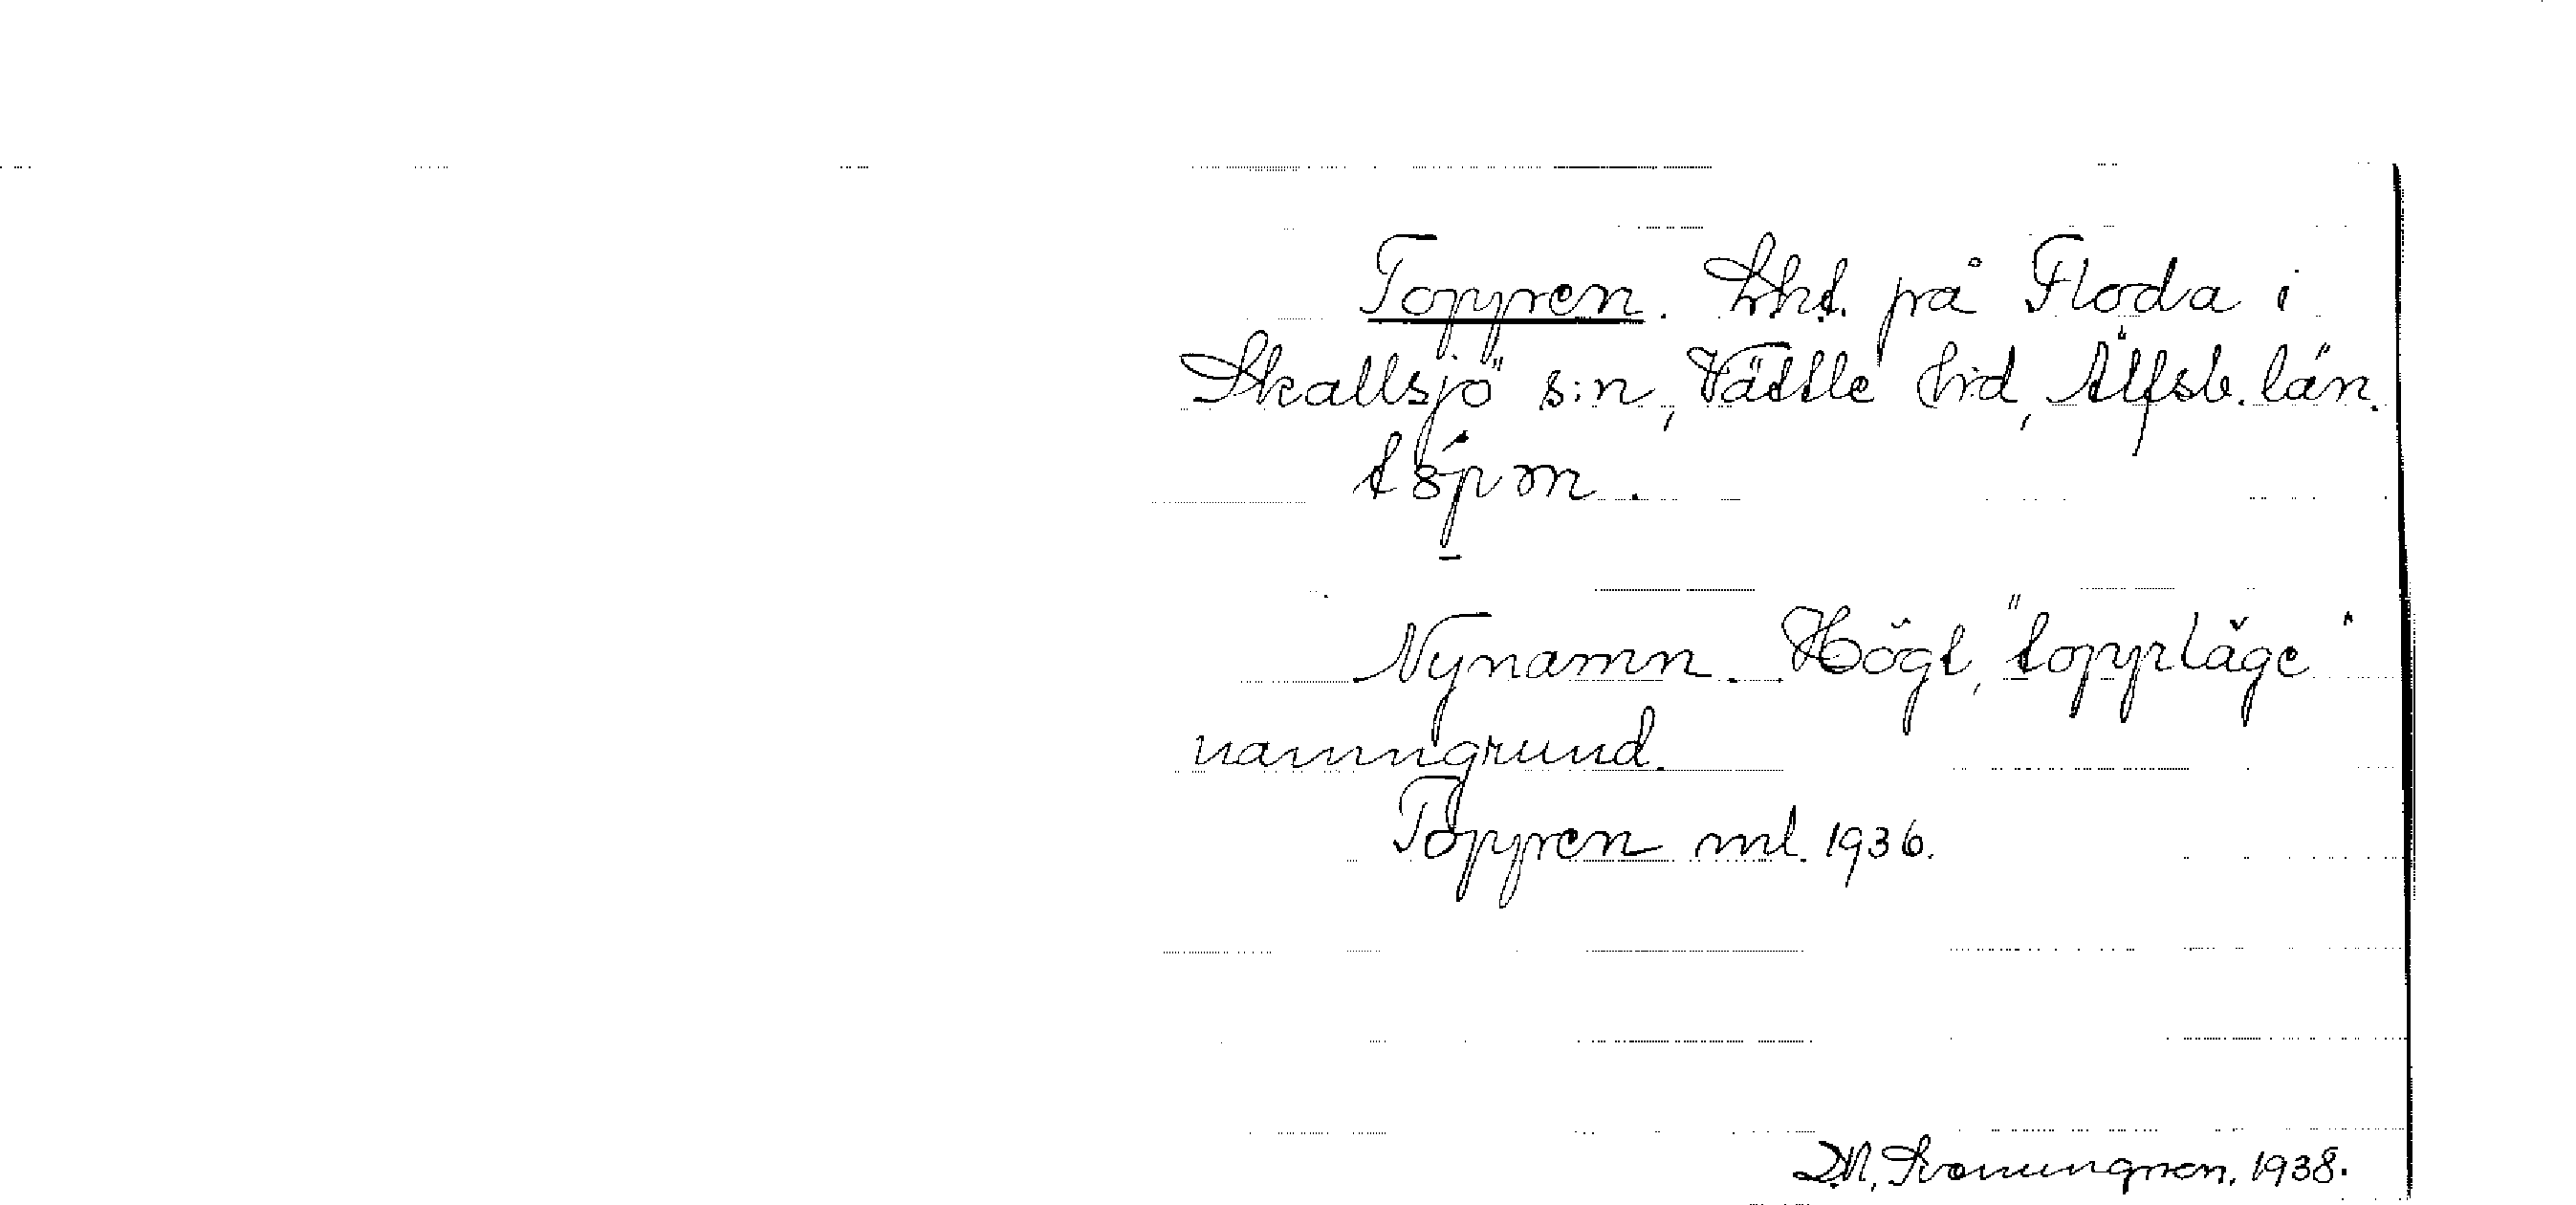 Toppen. Lht. på Floda i
Skallsjö s:n, Vättle hrd, Älfsb. län.
Nynamn. Högt, "toppläge"
namngrund.
Toppen ml. 1936.
1938.